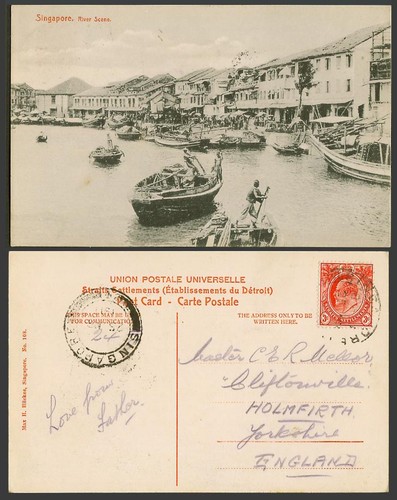 Singapore. River Scene.
UNION POSTALE UNIVERSELLE
Straits Settlements (Établissements du Détroit)
Post Card - Carte Postale
THIS SPACE MAY BE
FOR COMMUNICATION
THE ADDRESS ONLY TO BE
WRITTEN HERE.
SINGAPORE
Master C E R Mellor
Cliftonville
HOLMFIRTH
Yorkshire
ENGLAND
Love from
Father.
Max H. Hilckes, Singapore. No. 108.